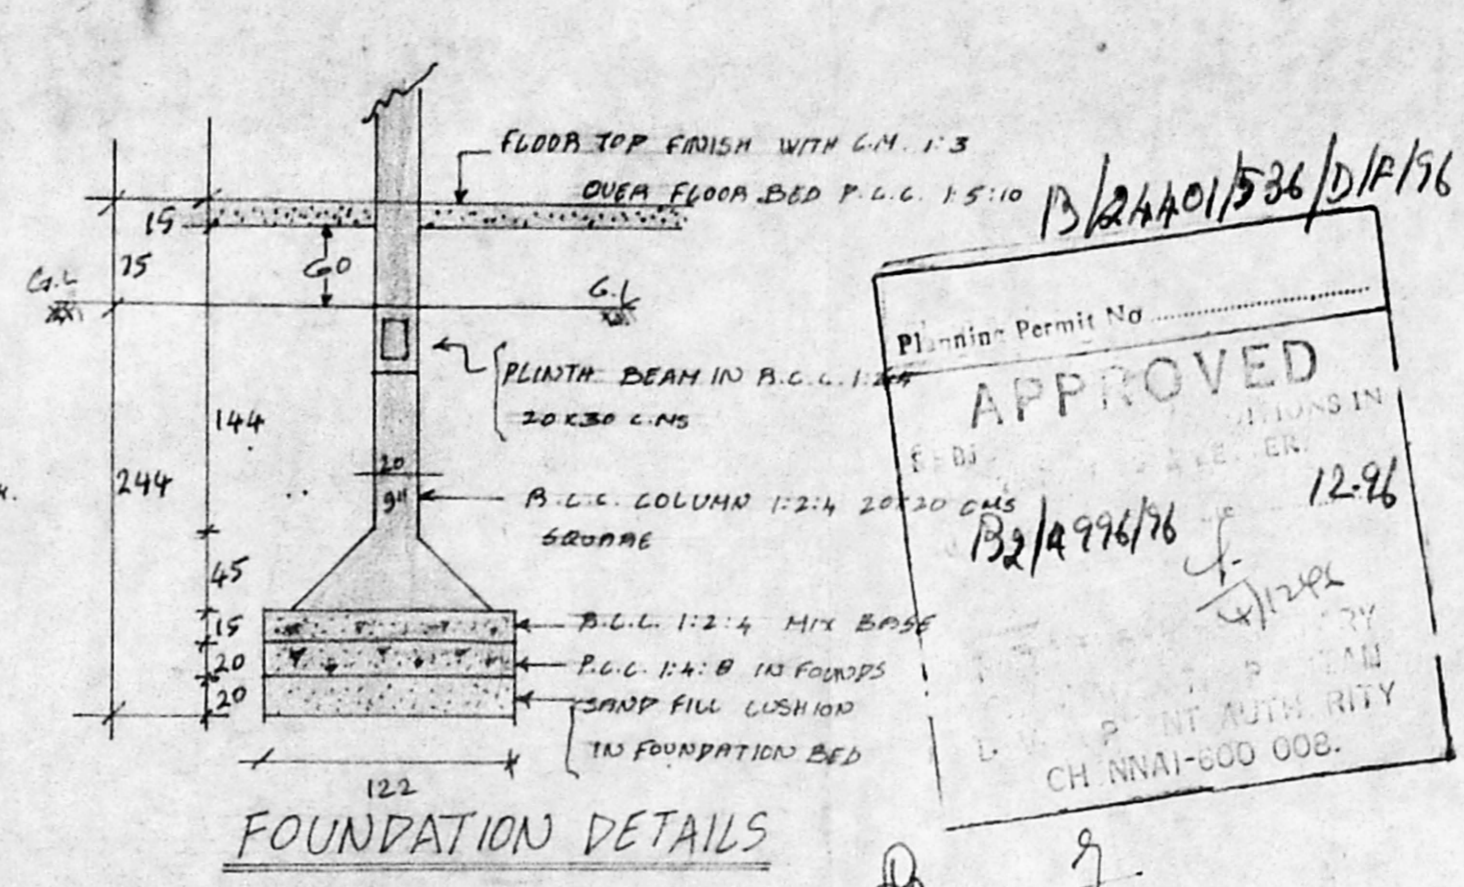 FLOOR TOP FINISH WITH C.M. 1:3
OVER FLOOR BED P.C.C. 1:5:10
15
75
60
G.L
G.L
PLINTH BEAM IN R.C.C. 1:2:4
20X30 C.MS
144
244
20
9"
R.C.C. COLUMN 1:2:4 20X20 CMS
SQUARE
45
15
R.C.C. 1:2:4 MIX BASE
20
P.C.C. 1:4:8 IN FOUNDS
20
SAND FILL CUSHION
IN FOUNDATION BED
122
FOUNDATION DETAILS
B/24401/536/D/F/96
Planning Permit No
APPROVED
IN
12.96
B2/4996/96
CH NNAI-600 008.